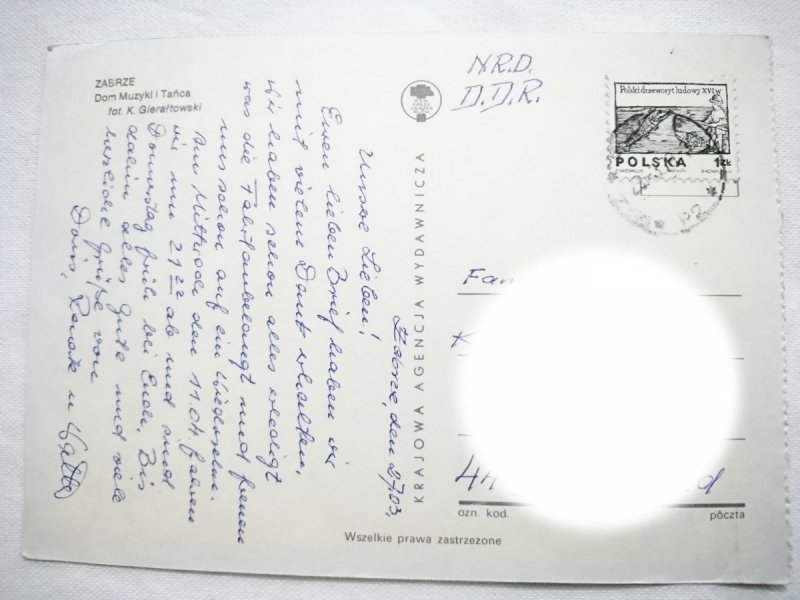 ZABRZE
Dom Muzyki i Tańca
fot. K. Gierałtowski
Zabrze, den 27.03,
Unsere Lieben!
Euren lieben Brief haben wir
mit vielem Dank erhalten,
wir haben schon alles erledigt
was die Fahrt anbelangt und freuen
uns schon auf ein Wiedersehn.
Am Mittwoch den 11.04. fahren
wir um 21 22 ab und sind
Donnerstag früh bei Euch, Bis
dahin alles Gute und viele
herzliche Grüße von
Doris, Renate u
KRAJOWA AGENCJA WYDAWNICZA
N.R.D.
D.D.R.
Polski drzeworyt ludowy XVI w
POLSKA 1ZŁ
Fam
K
44 d
ozn. kod. pôczta
Wszelkie prawa zastrzeżone